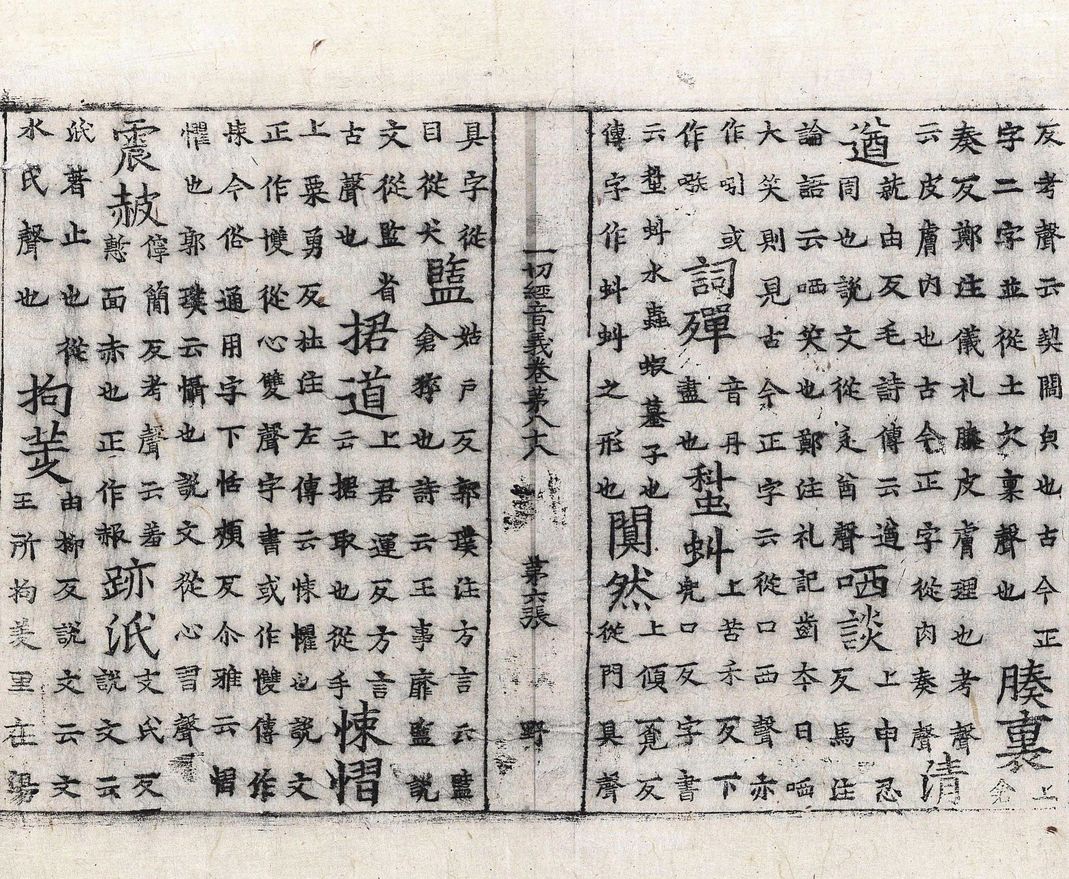 反考聲云契闊貞也古今正
字二字並從土欠稟聲也
腠裏
上倉
奏反鄭注儀礼腠皮膚理也考聲
云皮膚內也古今正字從肉奏聲
清
遒
就由反毛詩傳云遒
同也說文從辵酋聲
哂談
上申忍
反馬注
論語云哂笑也鄭注礼記齒夲曰哂
大笑則見古今正字云從口西聲亦
作吲或
作
詞殫
音丹
盡也
蝌蚪
上苦禾反下
兜口反字書
云蝌蚪水蟲蝦蟇子也
傳字作蚪蚪之形也
闃然
上傾覓反
從門具聲
一切經音義卷第八十六 第六張 野
具字從
目從犬
盬
姑戶反郭璞注方言云盬
倉獰也詩云王事靡盬說
文從監省
古聲也
捃道
上君運反方言
云捃取也從手
悚慴
上粟勇反杜注左傳云悚懼也說文
正作愯從心雙聲字書或作㦼傳作
悚今俗通用字下恬頰反尒雅云慴
懼也郭璞云懾也說文從心習聲
震赧
儜簡反考聲云羞
慙面赤也正作赧
跡泜
支氏反
說文云
泜著止也從
水氏聲也
拘羑
由柳反說文云文
王所拘羑里在湯